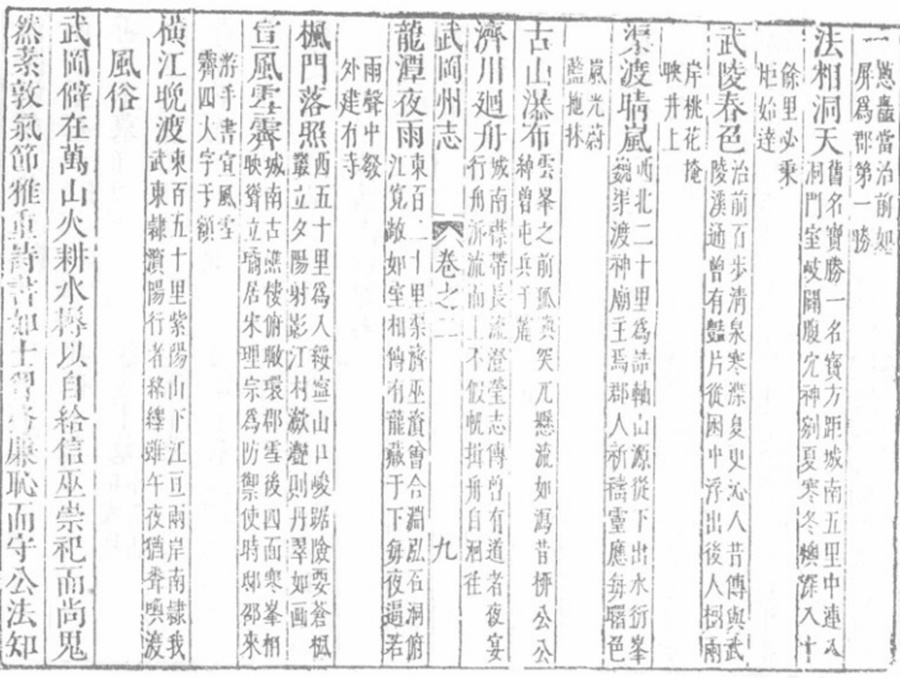 一蔥矗當治前如
屏爲郡第一勝
法相洞天舊名寶勝一名寶方距城南五里中連八
洞門室岐闢腹宂神剜夏寒冬燠深入十
餘里必秉
炬始達
武陵春色治前百步清泉寒潔夏更沁人昔傳與武
陵溪通曾有豔片從困中浮出後人樹兩
岸桃花掩
映井上
渠渡晴嵐西北二十里爲誥軸山源從下出水衍峯
巍渠渡神廟王焉郡人祈禱靈應每曙色
嵐光蔚
藍拖抹
古山瀑布雲峯之前孤 突兀懸流如瀉昔 公公
種曾屯兵于麓
濟川廻舟城南襟帶長流澄瑩志傳曾有道者夜宴
行舟泝流而上不假帆楫舟自洄往
武岡州志 卷之二 九
龍潭夜雨東百二十里渠濟巫資會合淵泓石洞俯
江寬敞如室相傳有龍藏于下每夜逼若
雨聲中發
外建有寺
楓門落照西五十里爲入綏寧山口峻踞險要蒼楓
叢立夕陽射影江村瀲灧則丹翠如畫
宣風雪霽城南古譙樓俯瞰環郡雪後四面寒峯相
映聳立瑜居宋理宗爲防禦使時邸邵來
游手書宣風雪
霽四大字于額
橫江晚渡東百五十里紫陽山下江亘兩岸南隸我
武東隸瀕陽行者絡繹雖午夜猶聲喚渡
風俗
武岡僻在萬山火耕水耨以自給信巫崇祀而尚鬼
然素敦氣節雅重詩書如士習 廉恥而守公法知